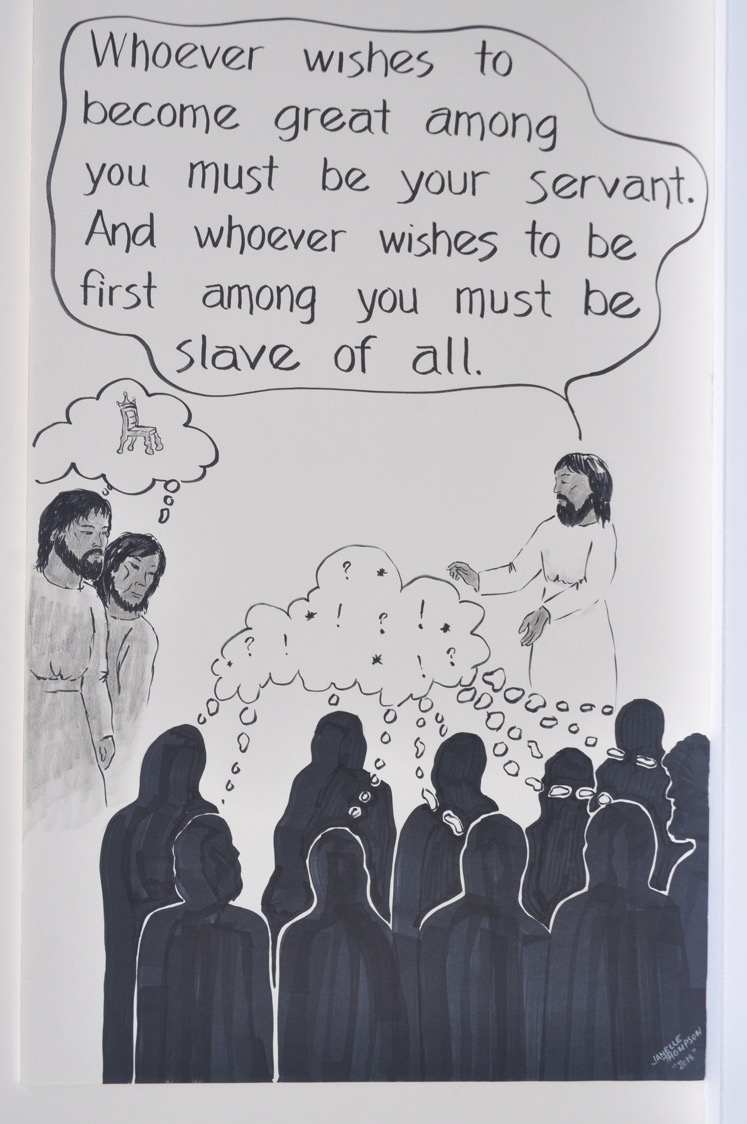 Whoever wishes to
become great among
you must be your servant.
And whoever wishes to be
first among you must be
slave of all.
? *
* ! ? ! *
* ? ! * ! ?
JANELLE
THOMPSON
"2015"